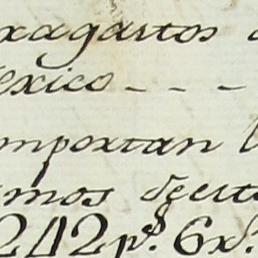 xagastos
exico - - -
mportan
imos
242 p.s 6 r.s